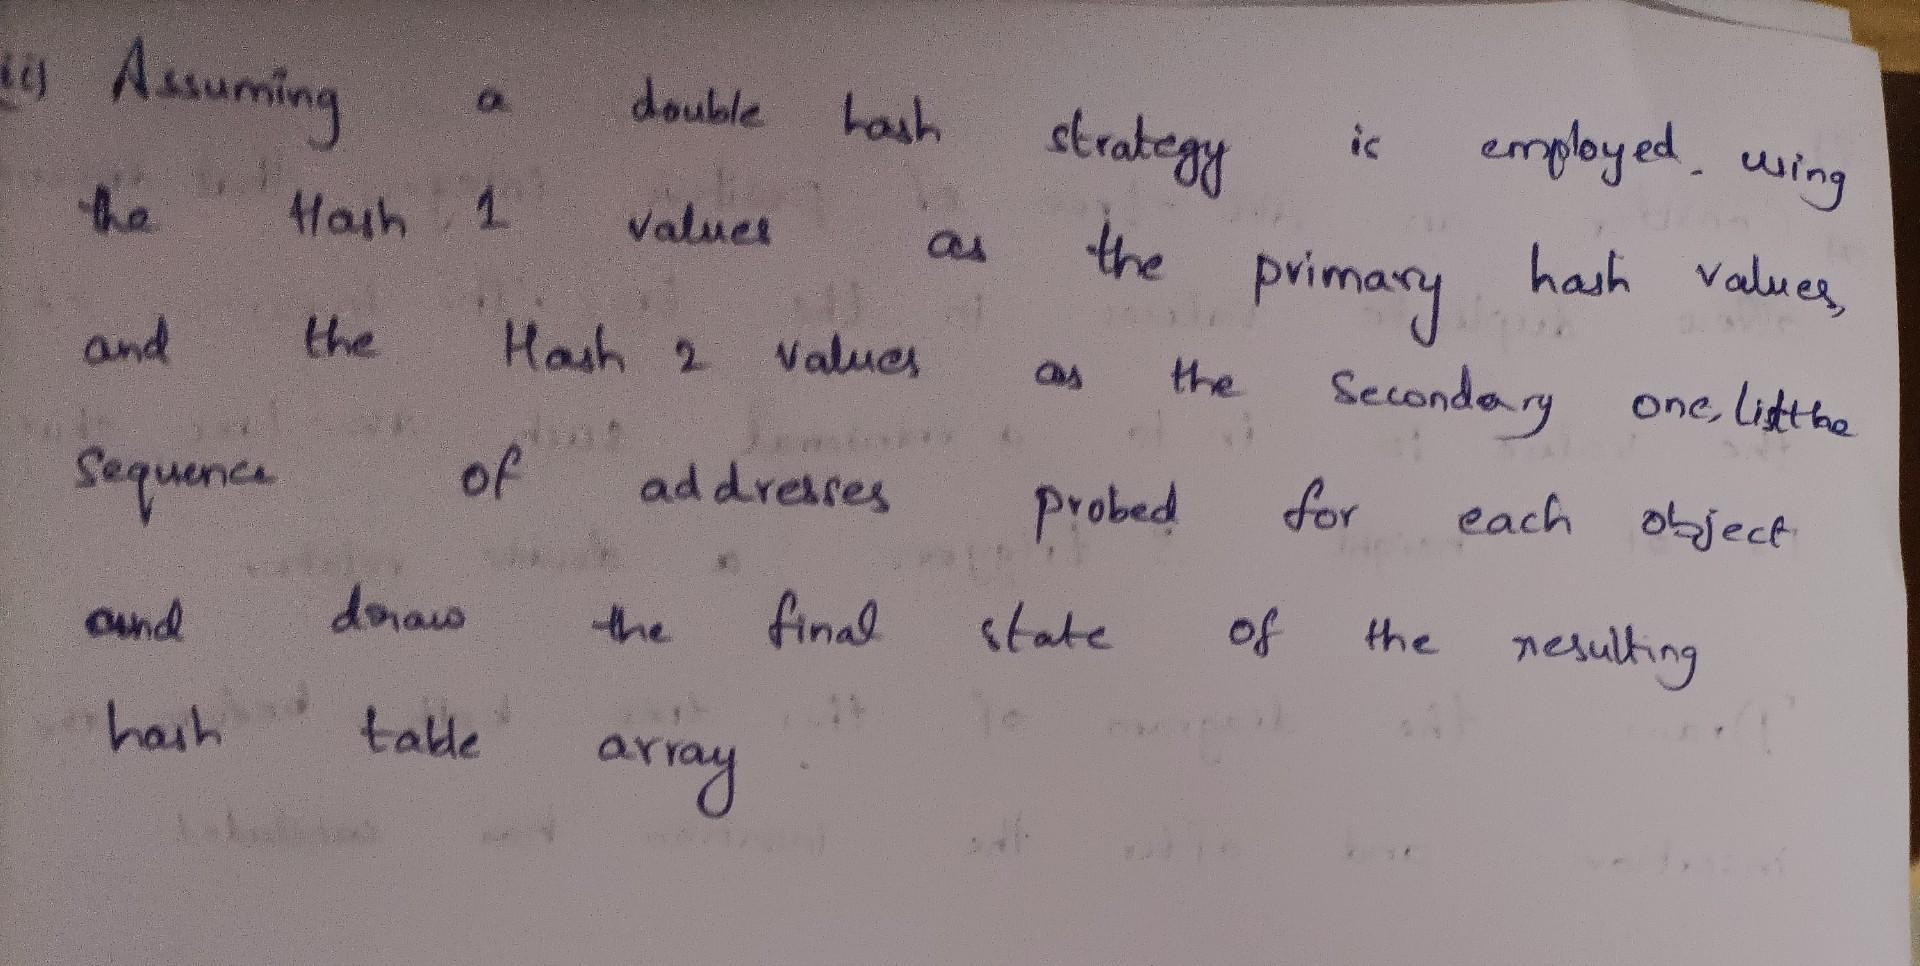 ii) Assuming a double hash strategy is employed. using
the Hash 1 values as the primary hash values,
and the Hash 2 values as the Secondary one, list the
Sequence of addresses probed for each object
and draw the final state of the resulting
hash table array.